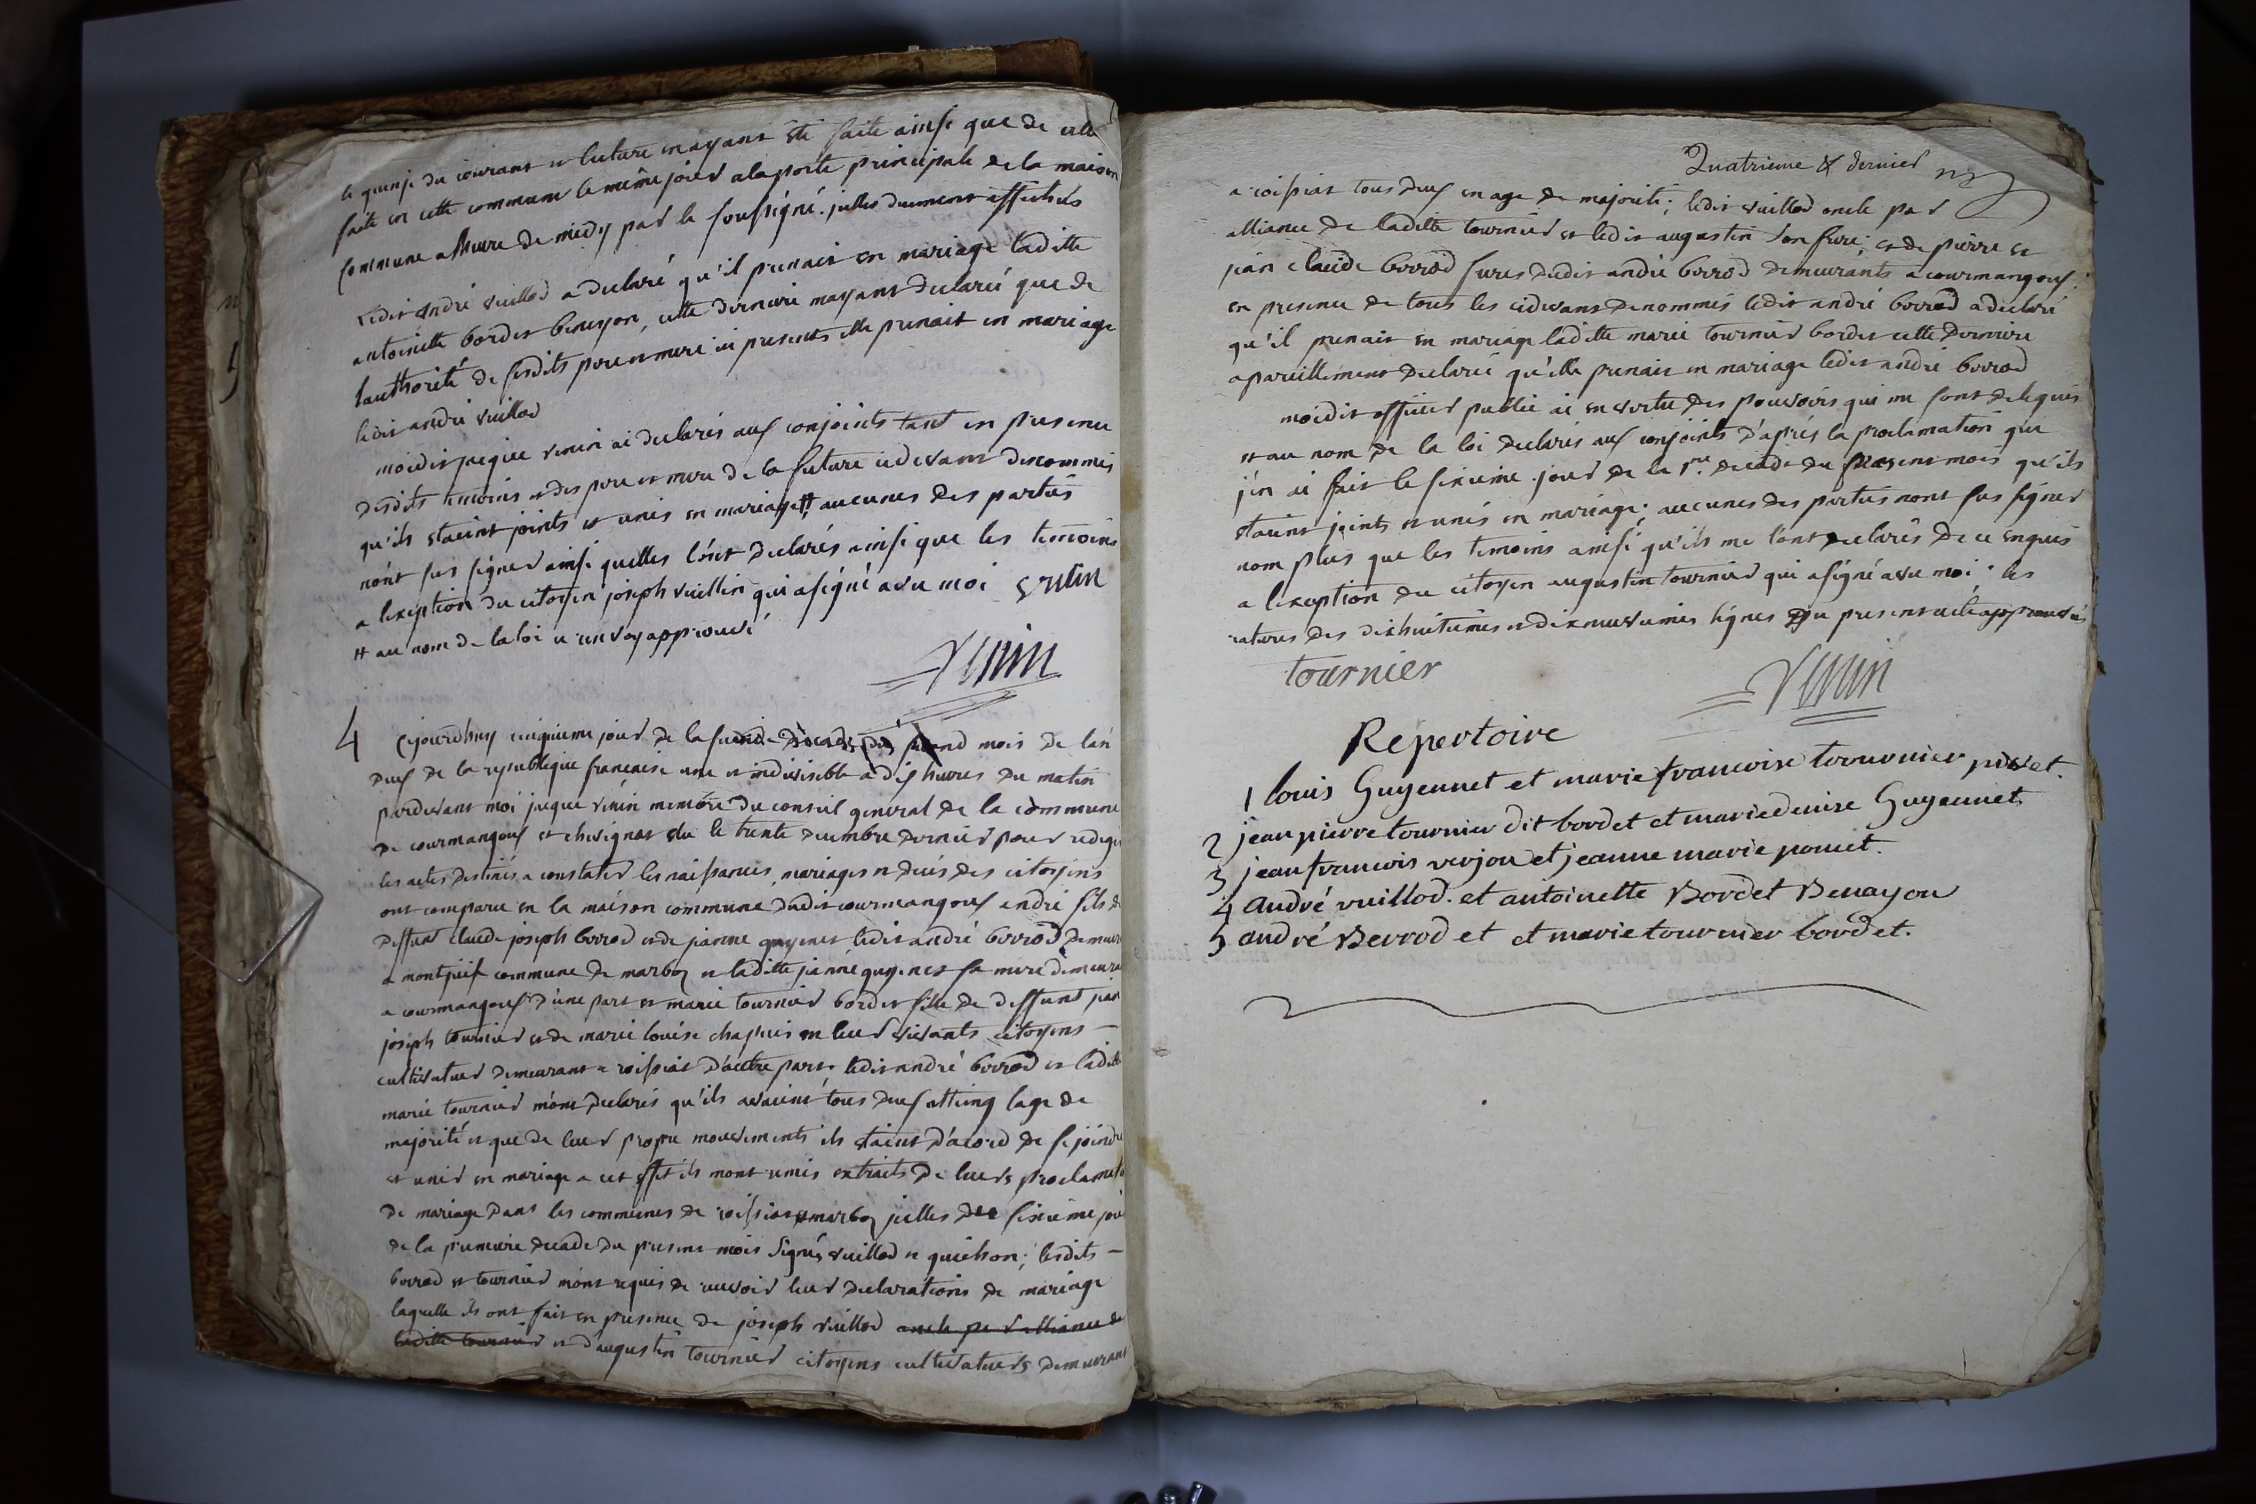 le quinze du courant et lecture m'ayant été faite ainsi que de celle
faite en cette commune le même jour a la porte principale de la maison
commune a lheure de midy par le soussigné. jcelles duement affichés
ledit andré vuillod a declaré qu'il prenait en mariage laditte
antoinette bordet benayon, cette derniere mayant declaré que de
lauthorité de sesdits pere et mere ici presents elle prenait en mariage
ledit andré vuillod
moidit jacque venin ai declarés aux conjoints tant en presence
desdits temoins et des pere et mere de la future cidevant denommés
qu'ils etaient joints et unis en mariage # aucunes des parties
nont sus signer ainsi quelles lont declarés ainsi que les temoins
a lexeption du citoyen joseph vuillin qui a signé avec moi
# au nom de la loi renvoy approuvé
venin
4 Cejourdhuy cinquieme jour de la seconde decade du second mois de lan
deux de la republique francaise une et indivisible a dix heures du matin
pardevant moi jacque venin membre du conseil general de la commune
de courmangoux et chevignat elu le trente decembre dernier pour rediger
les actes destinés a constater les naissances, mariages et decés des citoyens
ont comparu en la maison commune dudit courmangoux andré fils de
deffunt claude joseph borrod et de jeanne guyenet ledit andré borrod demeurant
a montjuif commune de marboz et laditte jeanne guyenet sa mere demeurant
a courmangoux d'une part et marie tournier bordet fille de deffunt jean
joseph tournier et de marie louise chapuis en leur vivants citoyens
cultivateur demeurant a roissiat d'autre part. ledit andré borrod et laditte
marie tournier mont declarés qu'ils avaient tous deux atteins lage de
majorité et que de leur propre mouvements ils etaient d'acord de se joindre
et unir en mariage a cet effet ils mont remis extraits de leurs proclamations
de mariage dans les communes de roissiat et marboz jcelles du sixieme jour
de la premiere decade du present mois signés vuillod et guichon; lesdits
borrod et tournier mont requis de recevoir leur declarations de mariage
laquelle ils ont fait en presence de joseph vuillod oncle par alliance de
laditte tournier et d'augustin tournier citoyens cultivateurs demeurant
Quatrieme & dernier
a roissiat tous deux en age de majorité; ledit vuillod oncle par
alliance de laditte tournier et ledit augustin son frere; et de pierre et
jean claude borrod freres dudit andré borrod demeurants a courmangoux;
en presence de tous les cidevant denommés ledit andré borrod a declaré
qu'il prenait en mariage laditte marie tournier bordet cette derniere
a pareillement declaré qu'elle prenait en mariage ledit andré borrod
moidit officier public ai en vertu des pouvoirs qui me sont delegués
et au nom de la loi declarés aux conjoints d'aprés la proclamation que
j'en ai fait le sixieme jour de la 1re decade du present mois qu'ils
etaient joints et unis en mariage; aucunes des parties nont sus signer
nom plus que les temoins ainsi qu'ils me lont declarés de ce enquis
a lexception du citoyen augustin tournier qui a signé avec moi; les
ratures des dixhuitiemes et dixneuvemes lignes du present acte approuvées
tournier
venin
Repertoire
1 louis Guyennet et marie francoise tournier pivet.
2 jean pierre tournier dit bordet et marie denise Guyennet
3 jean francois verjou et jeanne marie ponect.
4 andré vuillod. et antoinette Bordet Benayon
5 andré Berrod et et marie tournier bordet.